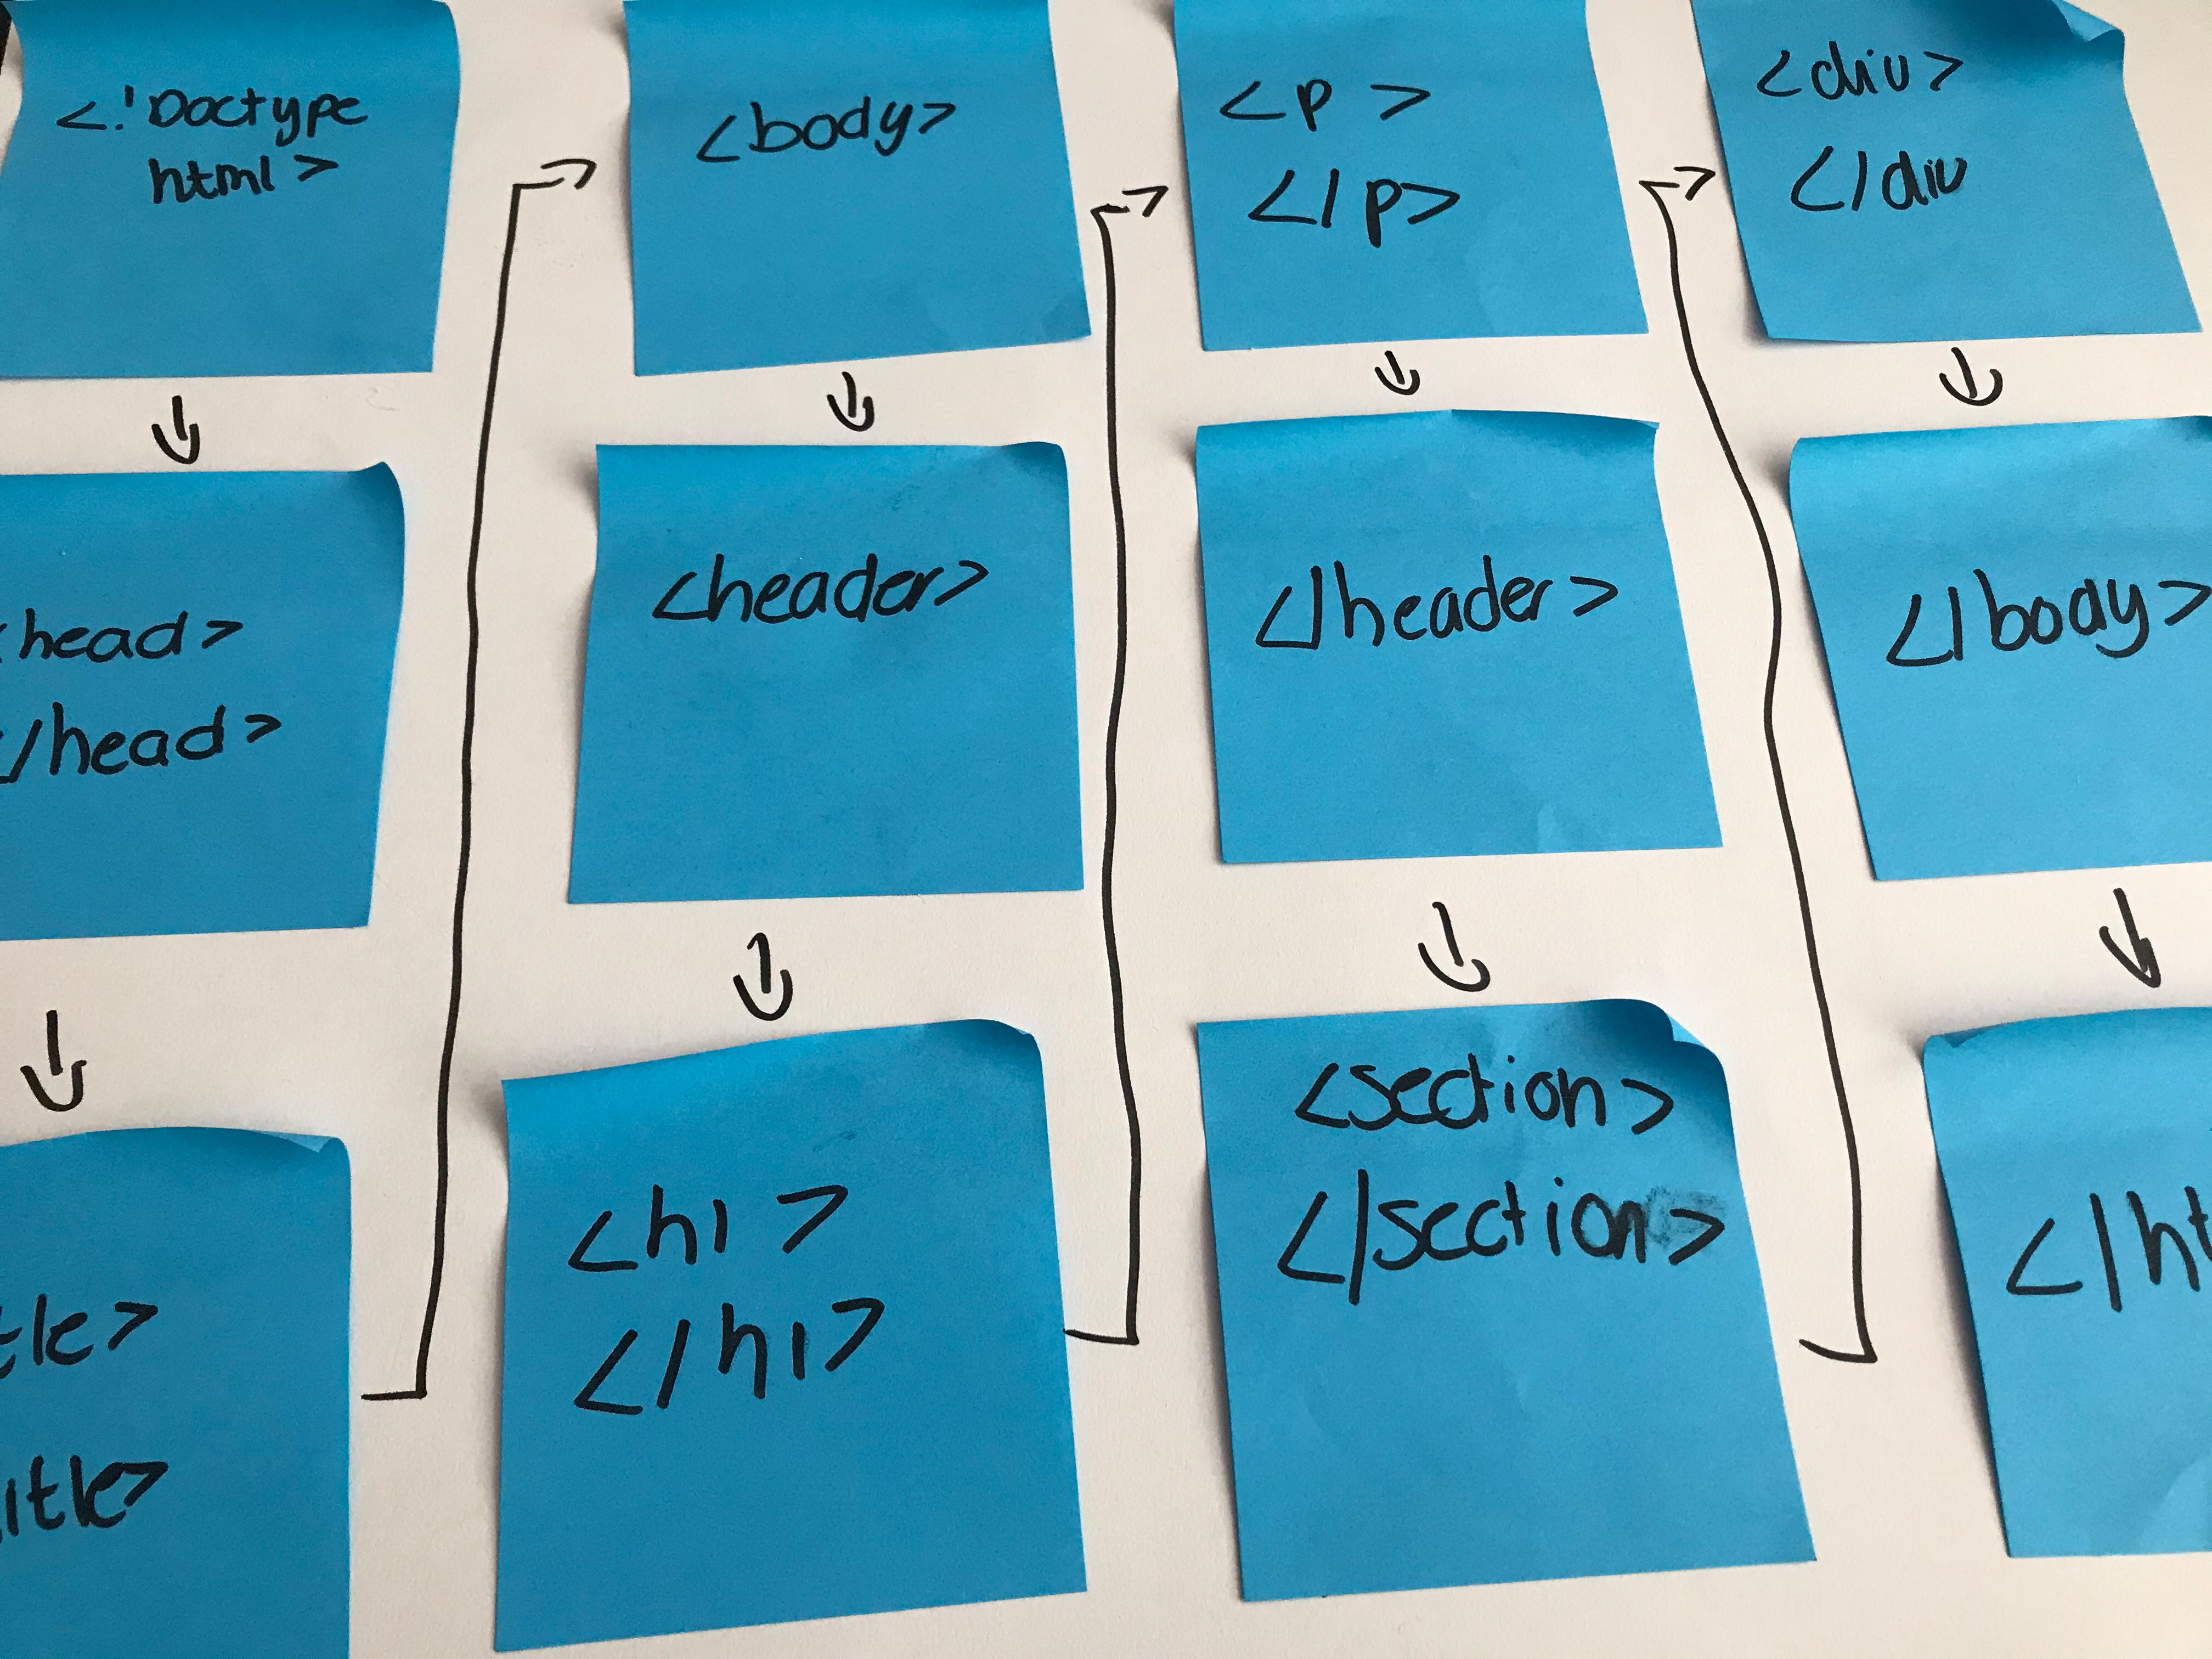 <!Doctype
html>
head>
</head>
tle>
itle>
<body>
<header>
<h1>
</h1>
<p>
</p>
</header>
<section>
</section>
<div>
</div
</body>
</ht